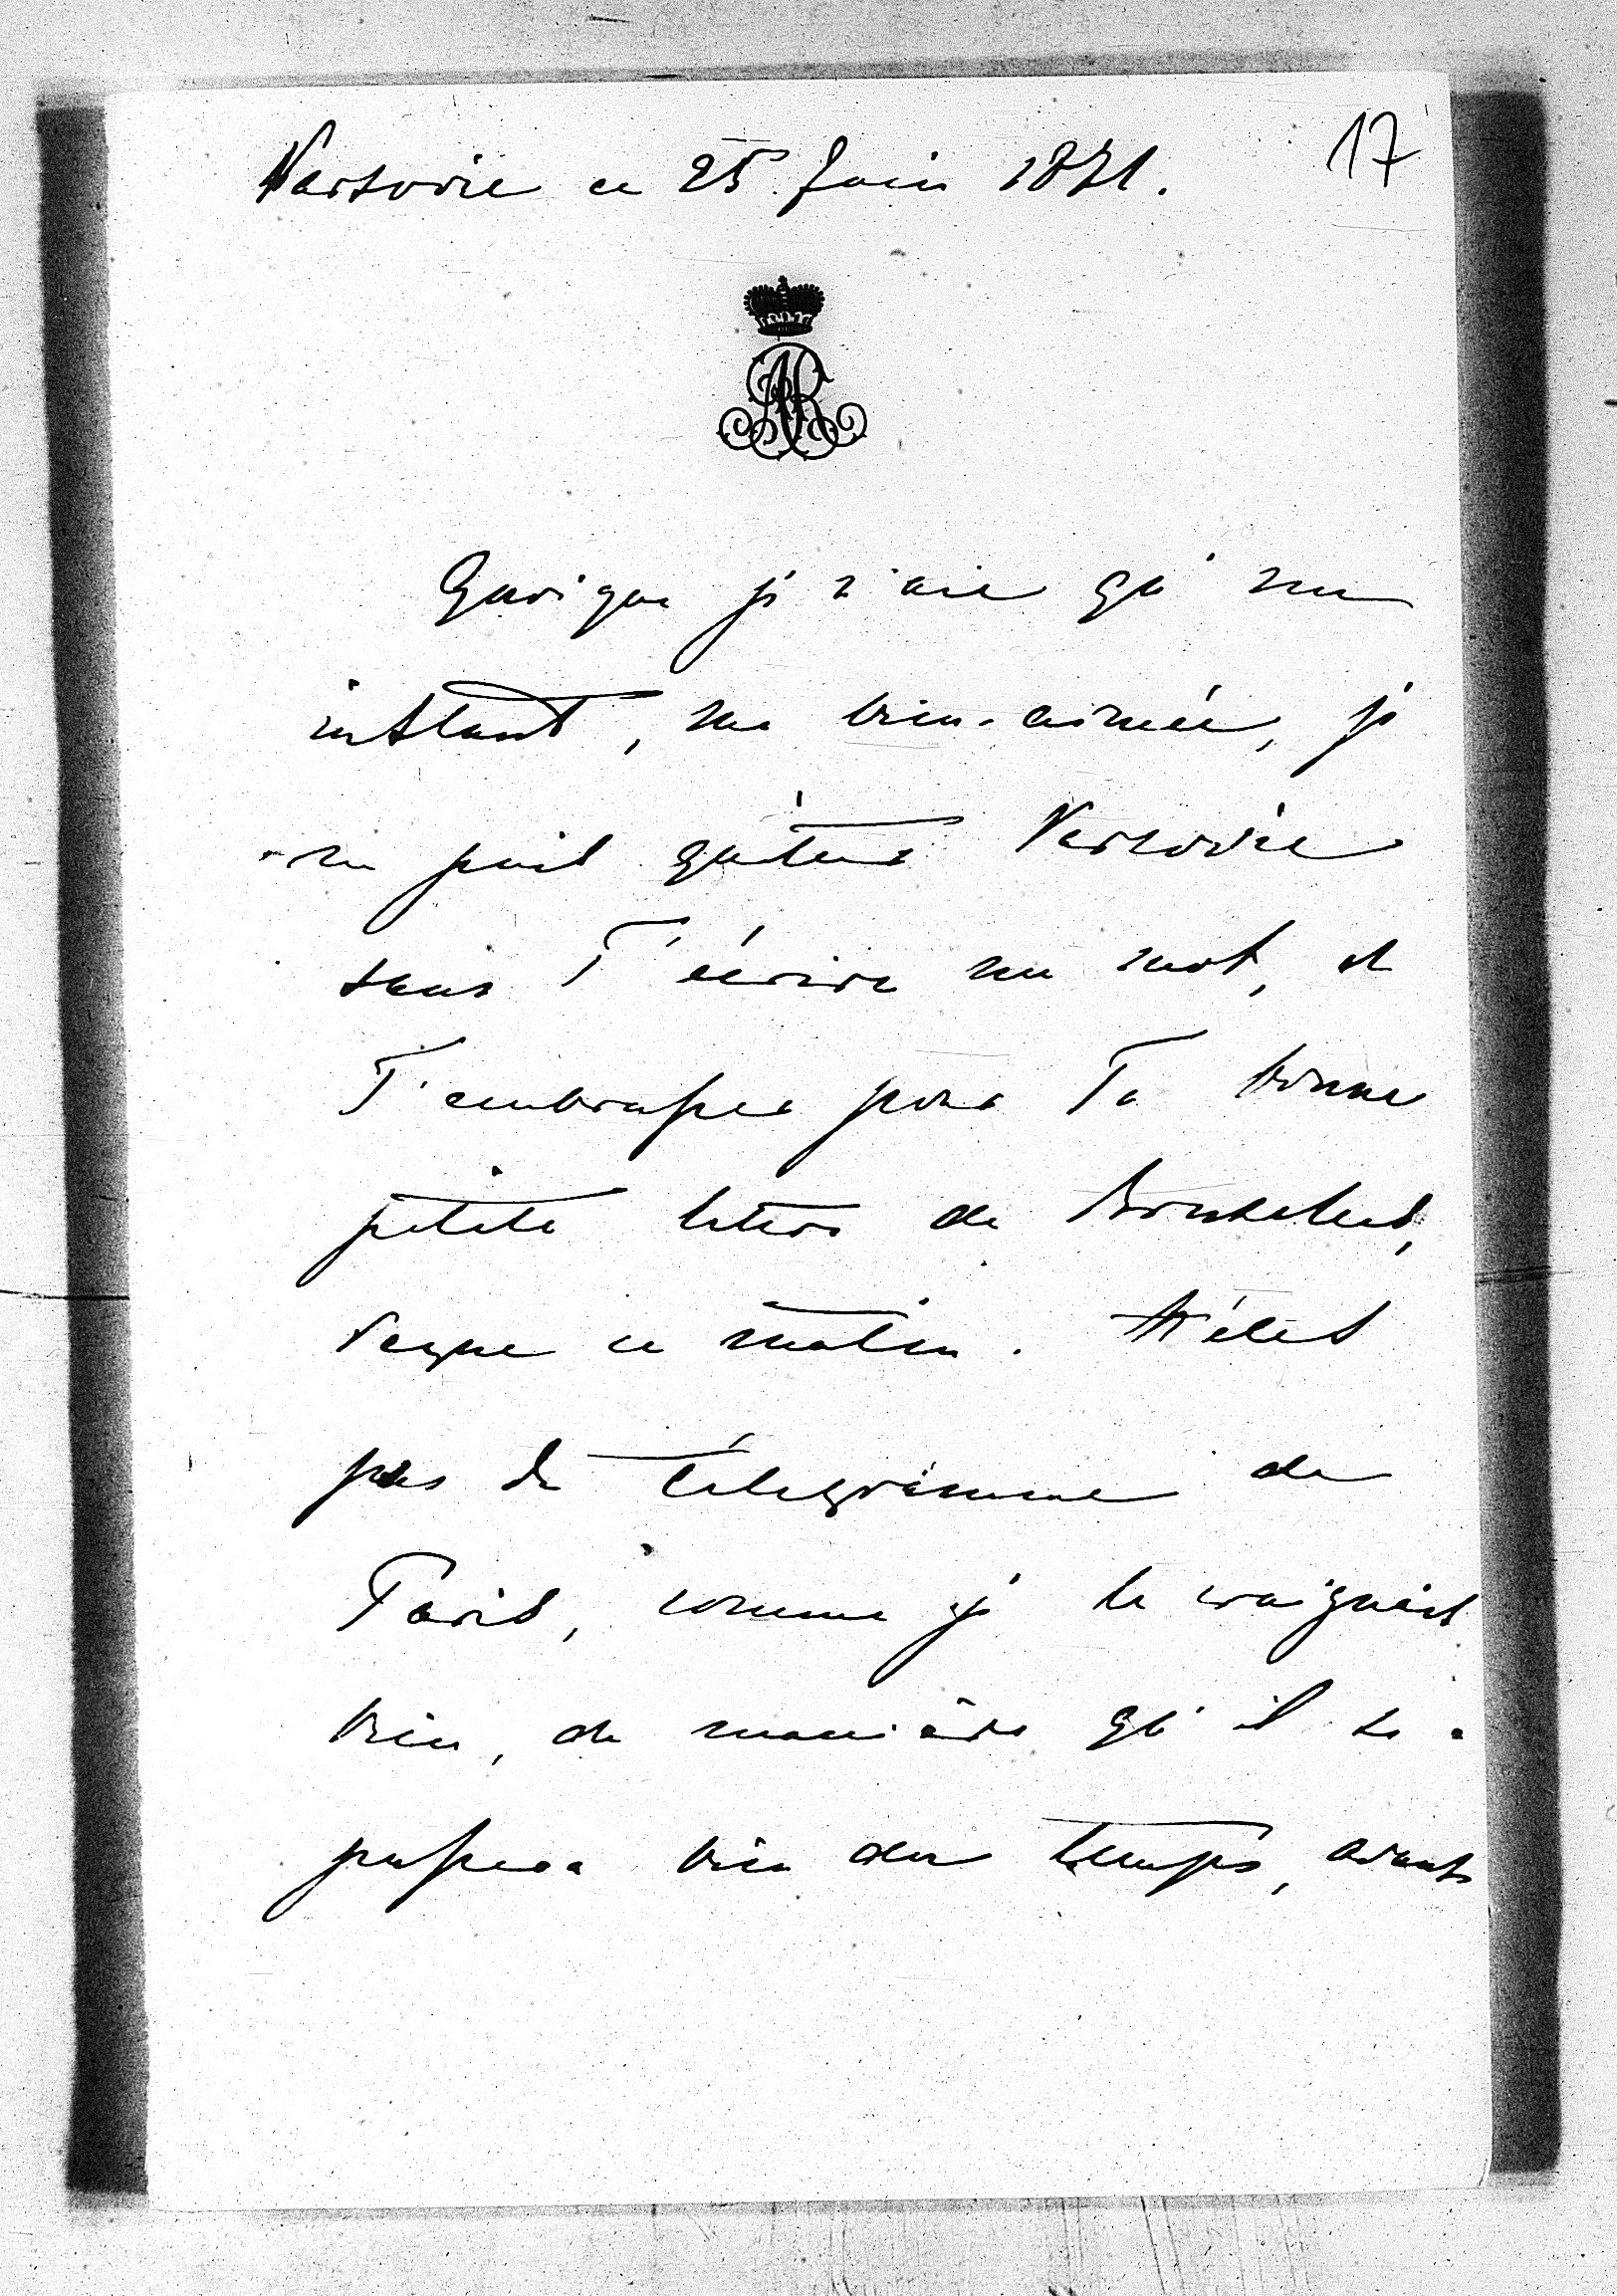 Varsovie ce 25 Juin 1871.
17
AR
Quoique je n'aie qu'un
instant, ma bien-aimée, je
ne puis quitter Varsovie
sans T'écrire un mot, et
T'embrasser pour Ta bonne
petite lettre de Bruxelles,
reçue ce matin. Hélas
pas de télégramme de
Paris, comme je le craignais
bien, de manière qu'il se
passera bien du temps, avant